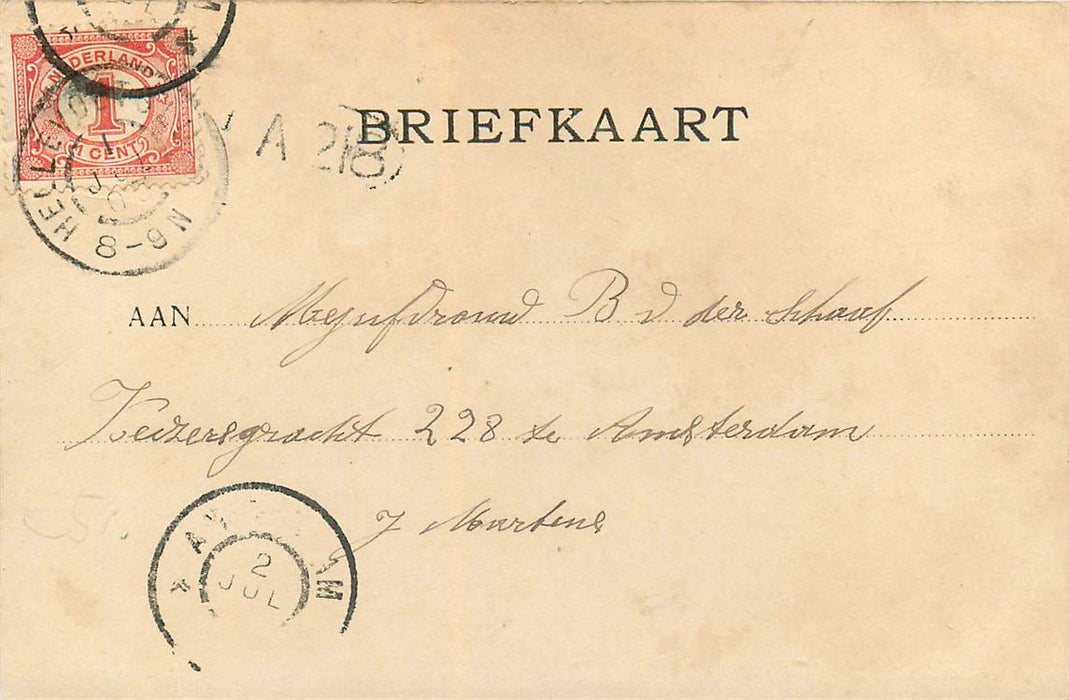 NEDERLAND
1
CENT
HELLEVOET
1
JUL
8-9 N
A 218
BRIEFKAART
AAN Mejufvrouw B v der Schaaf
Keizersgracht 228 te Amsterdam
J Martens
AM
2
JUL